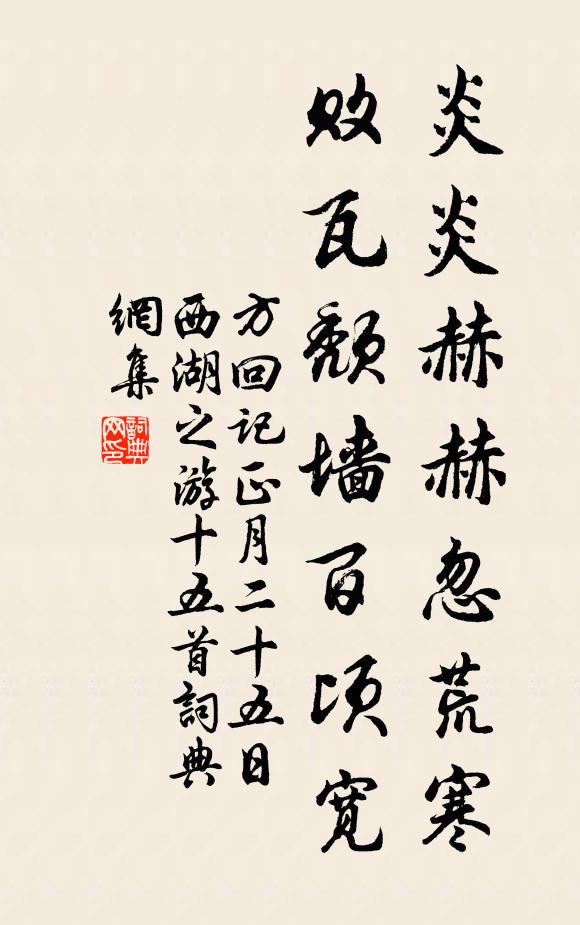 炎炎赫赫忽荒寒
败瓦颓墙百顷宽
方回记正月二十五日
西湖之游十五首詞典
網集
詞典
网印